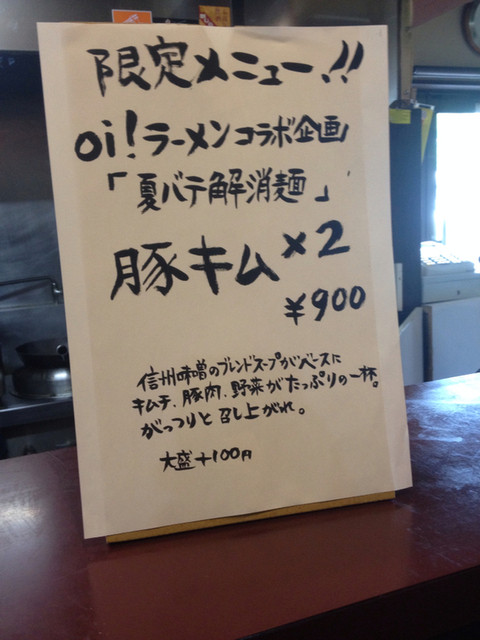 限定メニュー!!
oi!ラーメンコラボ企画
「夏バテ解消麺」
豚キム×2
¥900
信州味噌のブレンドスープがベースに
キムチ、豚肉、野菜がたっぷりの一杯。
がっつりと召し上がれ。
大盛+100円